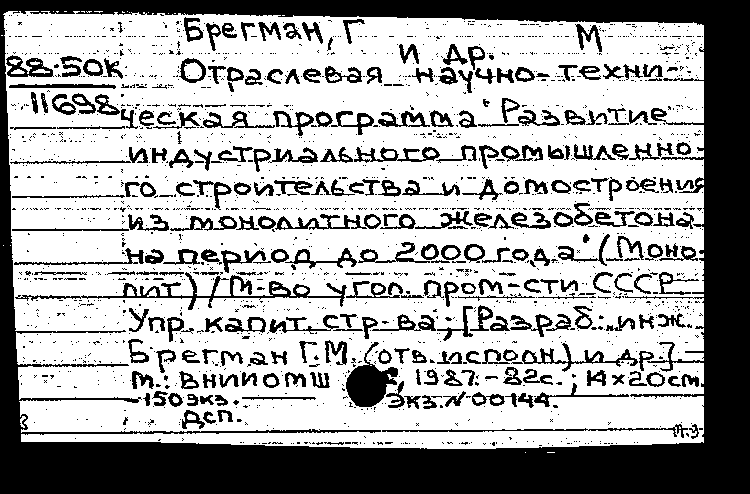 Брегман, Г М
и др.
88-50к
11698
Отраслевая научно-техни-
ческая программа "Развитие
индустриального промышленно-
го строительства и домостроения
из монолитного железобетона
на период до 2000 года" (Моно-
лит) / М-во угол. пром-сти СССР
Упр. капит. стр-ва; [Разраб.: инж.
Брегман Г.М. (отв. исполн.) и др.].
М.: ВНИИОМШ , 1987.-82с.; 14×20см.
-150экз. Экз.№00144.
ДСП.